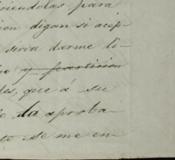 iendolas para
ion digan si acep
seria darme li
y
les, que á su
la aproba
to se me en